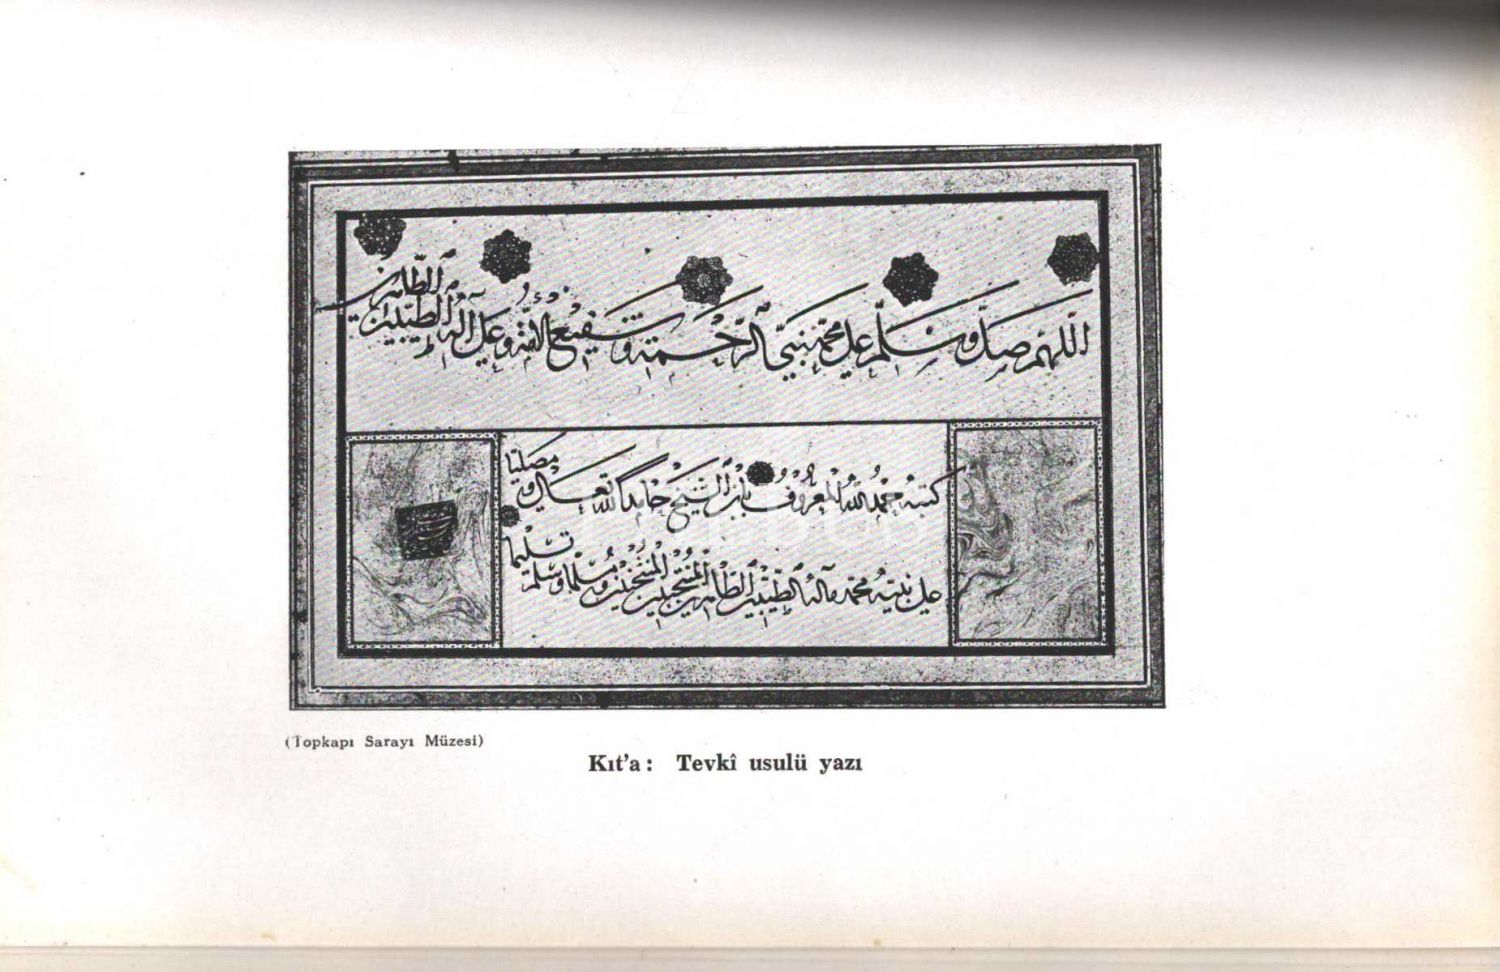 اللهم صل وسلم على محمد نبي الرحمة وشفيع الأمة وعلى آله الطيبين الطاهرين
كتبه حمد الله المعروف بابن الشيخ حامدا لله تعالى و مصليا
على نبيه محمد وآله الطيبين الطاهرين المنتجبين ومسلما وسلم تسليما
(Topkapı Sarayı Müzesi)
Kıt'a: Tevkî usulü yazı